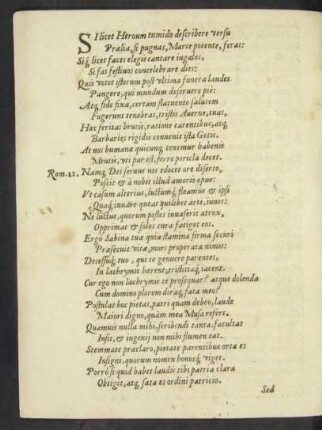 SI licet Heroum tumido describere versu
Prælia, si pugnas, Marte potente, feras:
Siq́; licet faces elegis cantare iugales,
Si fas festiuos concelebrare dies:
Quis vetet istorum post vltima funera laudes
Pangere, qui mundum deseruere piè:
Atq́; fide fixa, certam statuente salutem
Fugerunt tenebras, tristis Auerne, tuas,
Hæc feritas brutis, ratione carentibus, atq́;
Barbaries rigidis conuenit ista Getis.
At nos humana quicunq́; tenemur habenis
Mentis, vti par est, ferre pericla decet.
Rom. 12. Namq́; Dei seruus nos edocet ore diserto,
Poscit & à nobis illud amoris opus:
Vt casum alterius, luctumq́; fleamus & ipsi
Quaq́; iuuare queat quilibet arte, iuuet:
Ne luctus, quorum postes inuaserit atrox,
Opprimat & solos cura fatiget eos.
Ergo Sabina tuæ quia stamina firma securi
Præsecuit vitæ, mors properata nimis:
Decessuq́; tuo, qui te genuere parentes,
In lachrymis hærent, tristitiaq́; iacent.
Cur ego non lachrymis te prosequar? atque dolenda
Cum domino plorem deniq́; fata meo?
Postulat hoc pietas, patri quam debeo, laude
Maiori digno, quàm mea Musa refert.
Quamuis nulla mihi, scribendi carmina, facultas
Insit, & ingenij non mihi flumen eat.
Stemmate præclaro, pietate parentibus orta es
Insigni, quorum nomen honosq́; viget.
Porrò si quid habet laudis tibi patria clara
Obtigit, atq́; sata es ordini patricio.
Sed